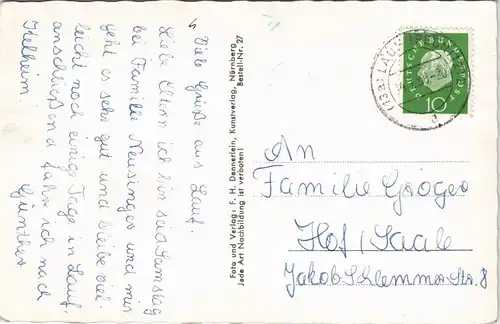 Viele Grüße aus Lauf.
Liebe Eltern ich bin seid Samstag
bei Familie Neusinger und mir
geht es sehr gut und bleibe viel-
leicht noch einig Tage in Lauf.
anschließend fahr ich nach
Kelheim.
Günther
Foto und Verlag: F. H. Dennerlein, Kunstverlag, Nürnberg
Jede Art Nachbildung ist verboten! Bestell-Nr. 27
(13a) LAUF
DEUTSCHE BUNDESPOST
10
An
Familie Gröger
Hof/Saale
Jakob Schlemmer Str. 8